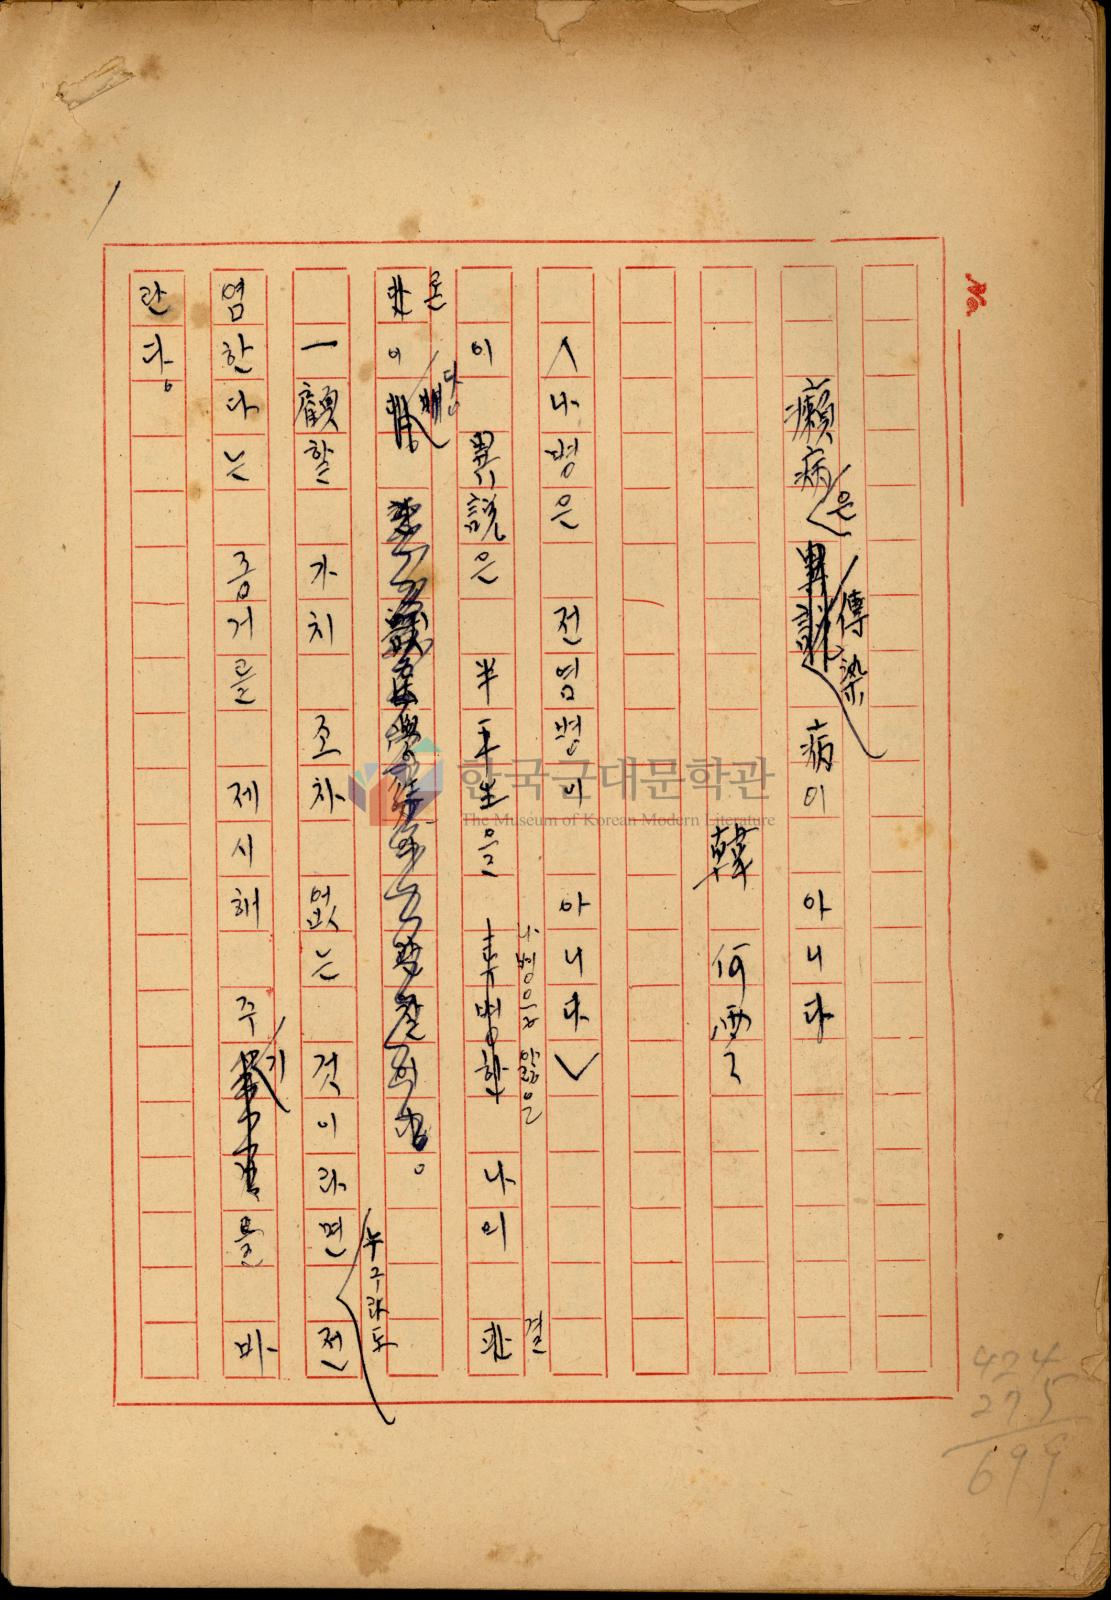 No.
癩病은 傳染病이 아니다
韓何雲
〈나병은 전염병이 아니다〉
이 異説은 半平生을 나병으로 앓은 나의 결
론이다.
一顧할 가치 조차 없는 것이라면 누구라도 전
염한다는 증거를 제시해 주기를 바
란다.
424
275
699
한국근대문학관
The Museum of Korean Modern Literature